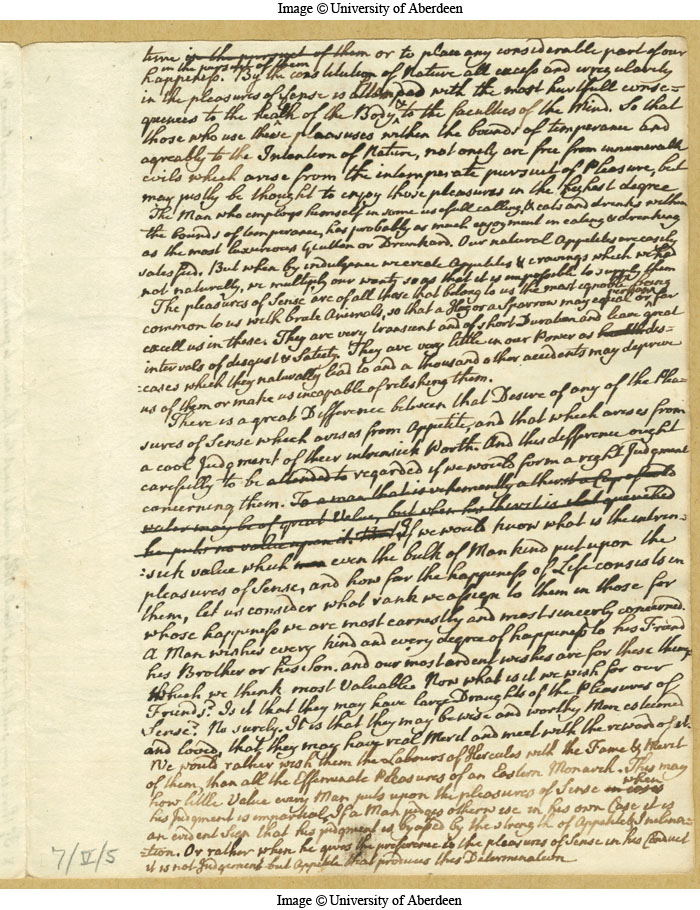 Image © University of Aberdeen
time in the pursuit of them or to place any considerable part of our
in the pursuit of them
happiness. By the constitution of Nature all excess and irregularity
in the pleasures of Sense is attended with the most hurtfull conse=
quences to the health of the Body & to the faculties of the Mind. So that
those who use these pleasures within the bounds of temperance and
agreably to the Intention of Nature, not onely are free from innumerable
evils which arise from the intemperate pursuit of Pleasure, but
may justly be thought to enjoy those pleasures in the highest degree
The Man who employs himself in some usefull calling, & eats and drinks within
the bounds of temperance, has probably as much enjoyment in eating & drinking
as the most luxurious Glutton or Drunkard. Our natural Appetites are easily
satisfied. But when by indulgence we create Appetites & cravings which we had
not naturally, we multiply our wants so as that it is impossible to supply them
The pleasures of Sense are of all those that belong to us the most ignoble being
common to us with brute Animals, so that a Hog or a Sparrow may equal or perhaps far
excell us in these. They are very transient and of short Duration and leave great
intervals of disgust & Satiety. They are very little in our Power as dis=
:cases which they naturally lead to and a thousand other accidents may deprive
us of them or make us incapable of relishing them.
There is a great Difference between that Desire of any of the Plea=
sures of Sense which arises from Appetite, and that which arises from
a cool Judgment of their intrinsick Worth. And this difference ought
carefully to be attended to regarded if we would form a right Judgment
concerning them. To a man that is vehemently athirst a Cup of cold
water may be of great Value, but when his thirst is quenched
he puts no value upon it. If we would know what is the intrin=
:sick value which even the bulk of Mankind put upon the
pleasures of Sense, and how far the happiness of Life consists in
them, let us consider what rank we assign to them in those for
whose happiness we are most earnestly and most sincerly concerned.
A Man wishes every kind and every degree of happiness to his Friend
his Brother or his Son. and our most ardent wishes are for these things
Which we think most Valuable. Now what is it we wish for our
Friends? Is it that they may have large Draughts of the Pleasures of
Sense? No surely. It is that they may be wise and worthy Men esteemed
and loved, that they may have real Merit and meet with the reward of it.
We would rather wish them the Labours of Hercules with the Fame & Merit
of them, than all the Effeminate Pleasures of an Eastern Monarch. This may
how little Value every Man puts upon the pleasures of Sense in cases when
his Judgment is impartial, If a Man judges otherwise in his own Case it is
an evident Sign that his judgment is byased by the strength of Appetite & Inclina=
:tion. Or rather when he gives the preference to the pleasures of Sense in his Conduct
it is not Judgement but Appetite that produces this Determination
7/V/5
Image © University of Aberdeen